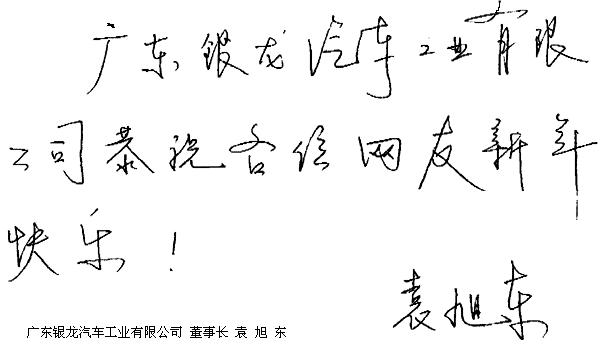 广东银龙汽车工业有限
公司恭祝各位网友新年
快乐！
袁旭东
广东银龙汽车工业有限公司 董事长 袁 旭 东